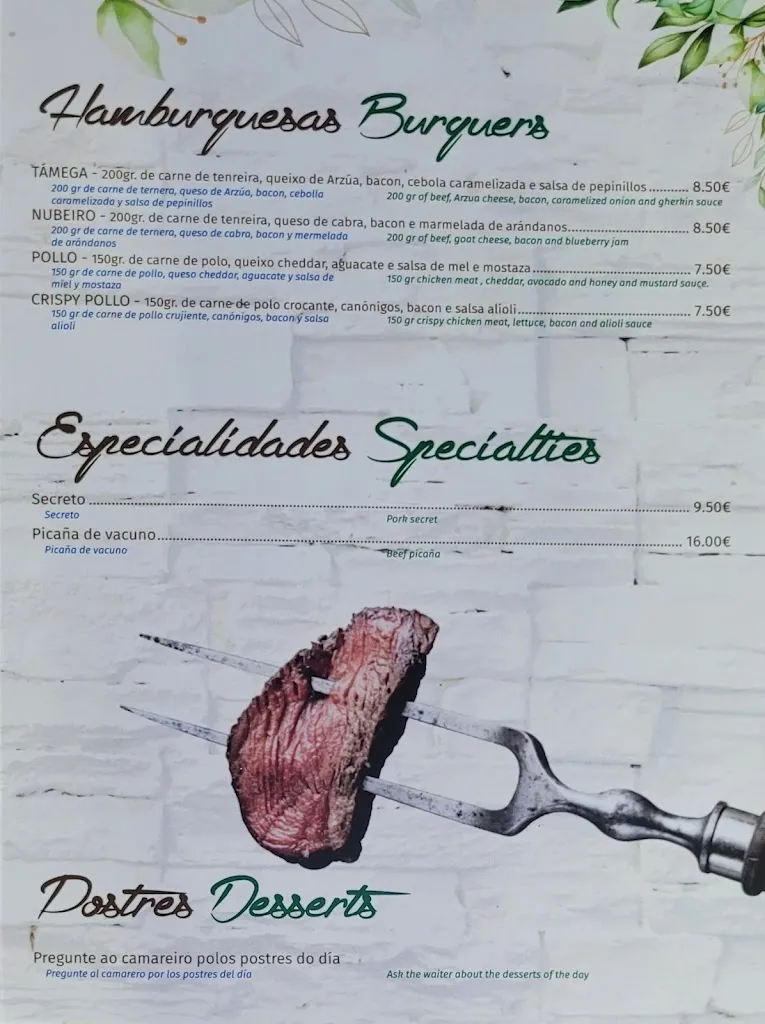 Hamburguesas Burguers
TÁMEGA - 200gr. de carne de tenreira, queixo de Arzúa, bacon, cebola caramelizada e salsa de pepinillos.......... 8.50€
200 gr de carne de ternera, queso de Arzúa, bacon, cebolla
caramelizada y salsa de pepinillos
200 gr of beef, Arzua cheese, bacon, caramelized onion and gherkin sauce
NUBEIRO - 200gr. de carne de tenreira, queso de cabra, bacon e marmelada de arándanos.......... 8.50€
200 gr de carne de ternera, queso de cabra, bacon y mermelada
de arándanos
200 gr of beef, goat cheese, bacon and blueberry jam
POLLO - 150gr. de carne de polo, queixo cheddar, aguacate e salsa de mel e mostaza.......... 7.50€
150 gr de carne de pollo, queso cheddar, aguacate y salsa de
miel y mostaza
150 gr chicken meat , cheddar, avocado and honey and mustard sauce.
CRISPY POLLO - 150gr. de carne de polo crocante, canónigos, bacon e salsa alioli.......... 7.50€
150 gr de carne de pollo crujiente, canónigos, bacon y salsa
alioli
150 gr crispy chicken meat, lettuce, bacon and alioli sauce
Especialidades Specialties
Secreto.......... 9.50€
Secreto
Pork secret
Picaña de vacuno.......... 16.00€
Picaña de vacuno
Beef picaña
Postres Desserts
Pregunte ao camareiro polos postres do día
Pregunte al camarero por los postres del día
Ask the waiter about the desserts of the day